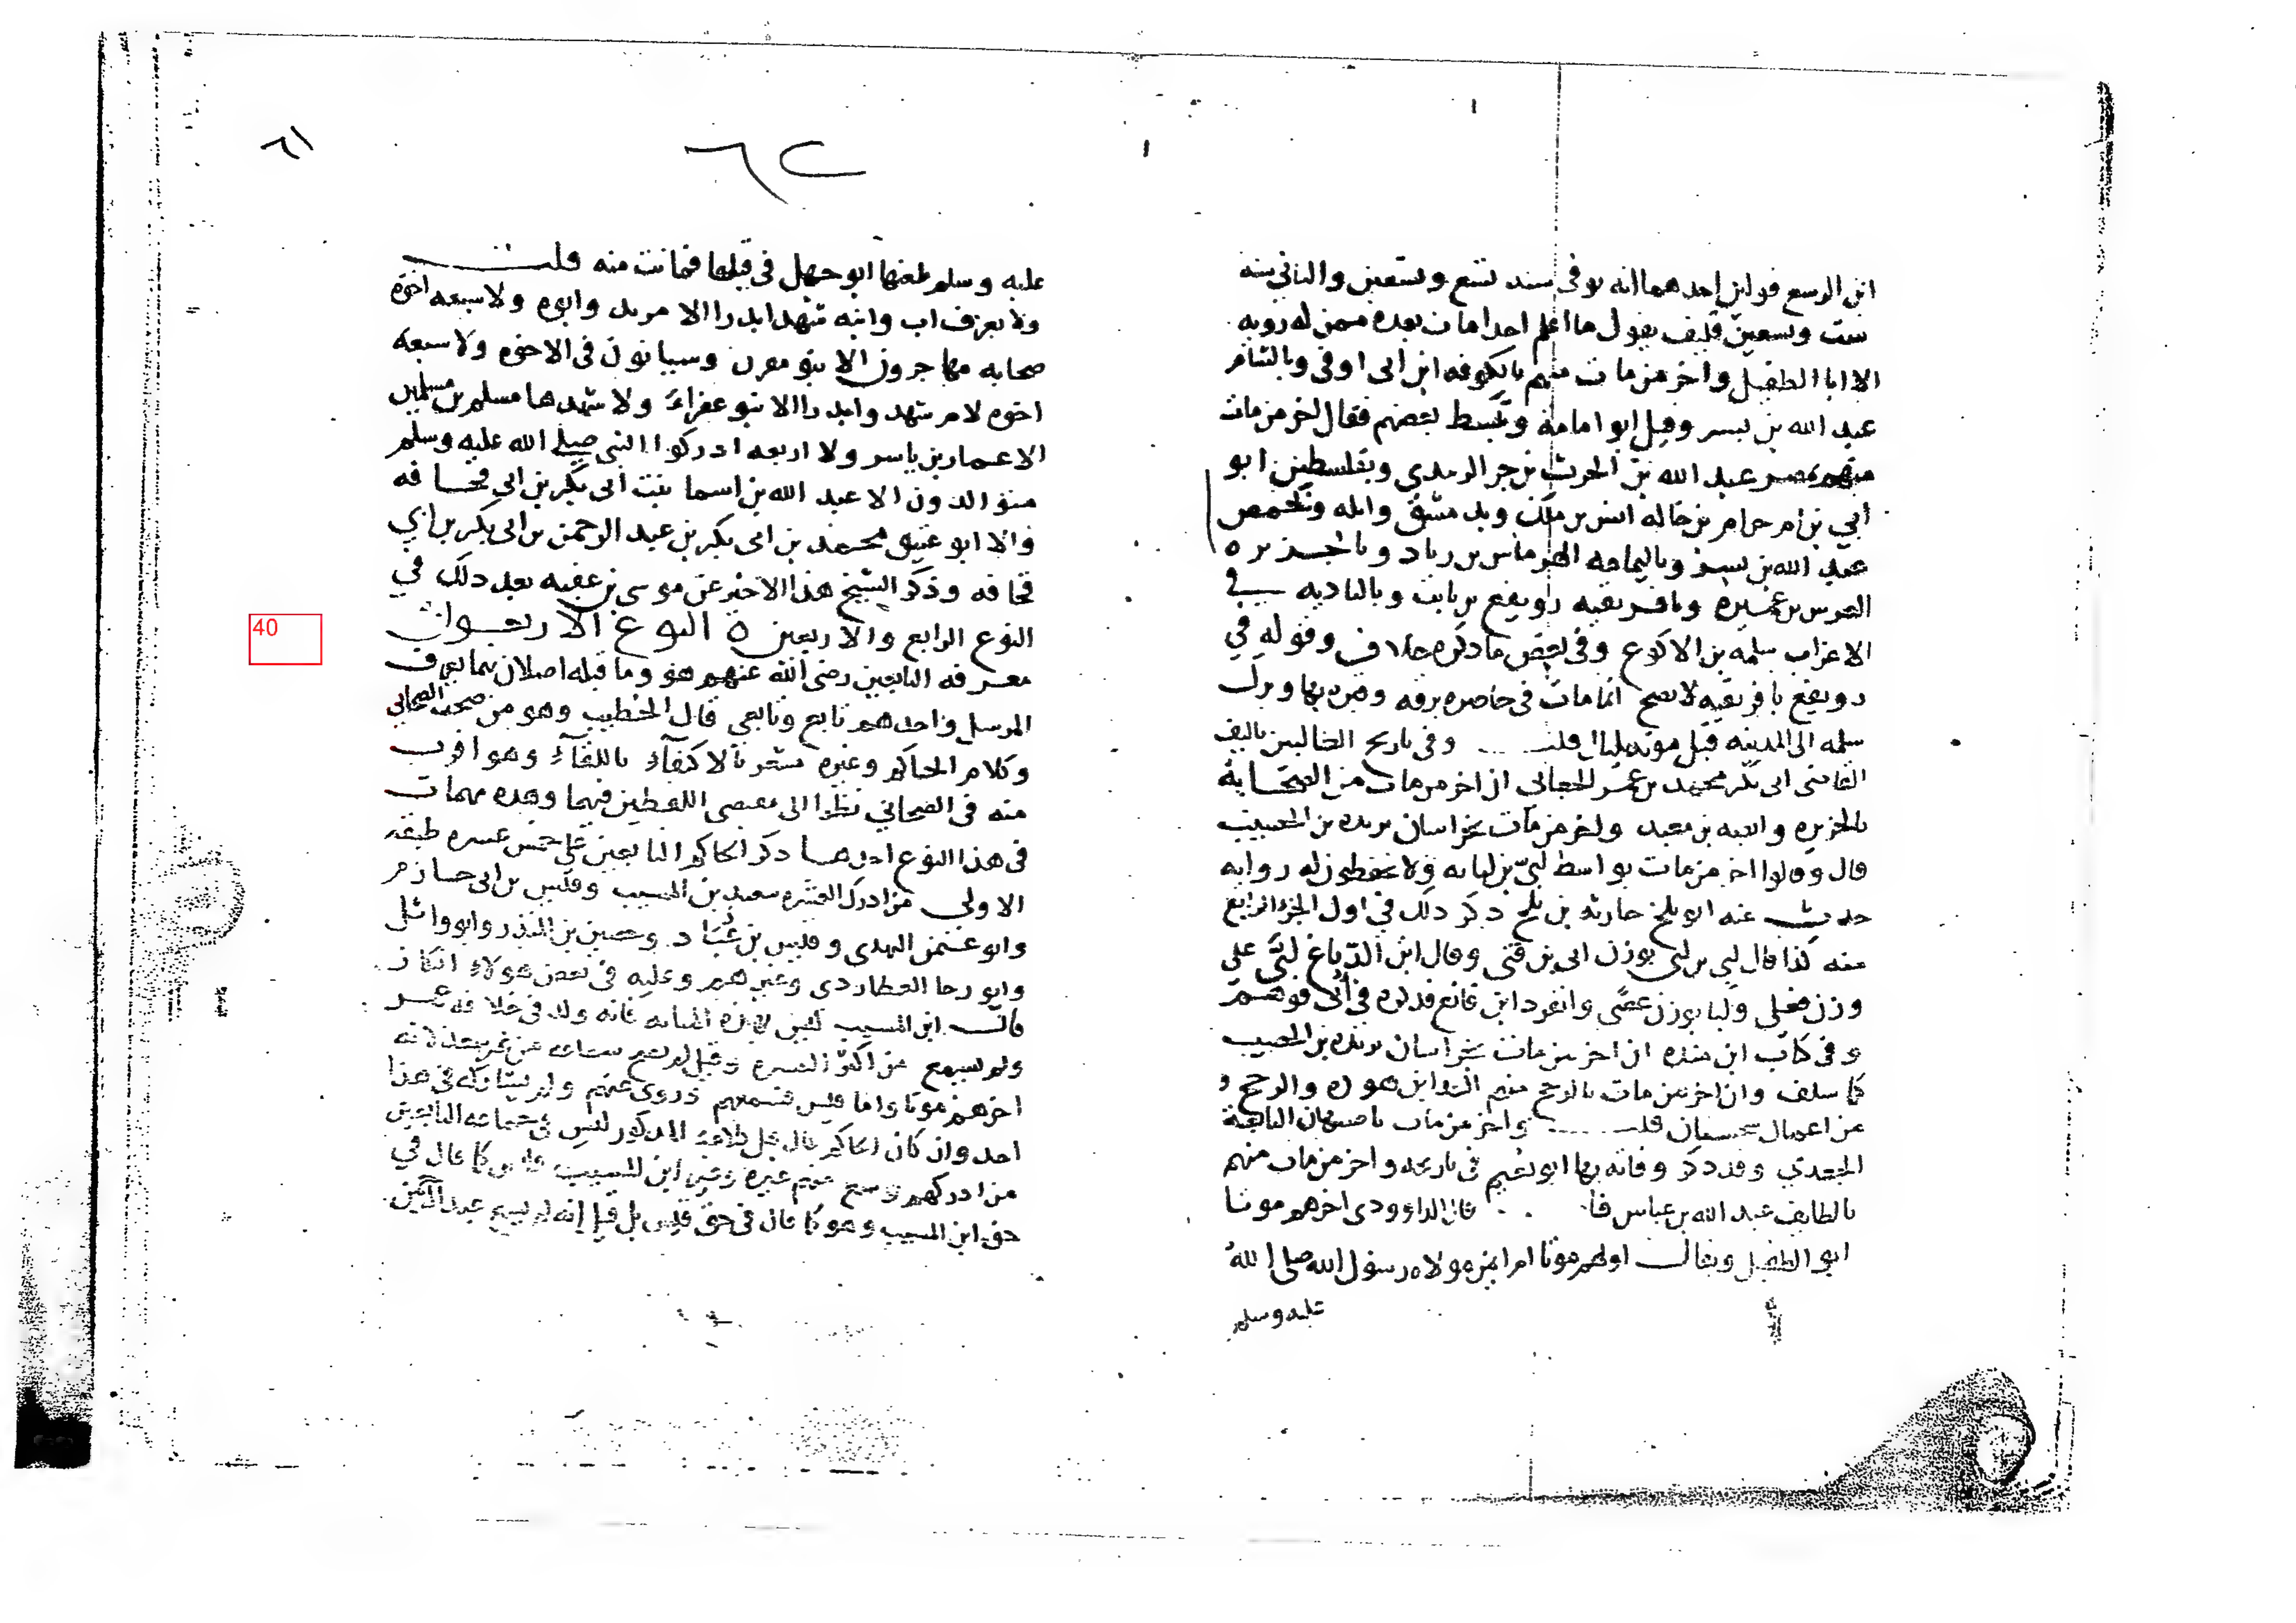 ٦١
٦٢
ابن الربيع قولين احدهما انه توفى سنه تسع وتسعين والثاني سنه
ست وتسعين فكيف يقول ما اعلم احدا مات بعده ممن له رويه
الا ابا الطفيل واخر من مات منهم بالكوفه ابن ابى اوفى وبالشام
عبد الله بن بسر وقيل ابو امامة وتبسط بعضهم فقال اخر من مات
منهم بمصر عبد الله بن الحرث بن جز الزبيدي وبفلسطين ابو
ابي بن ام حرام بن خاله انس بن ملك وبدمشق واثله وبحمص
عبد الله بن بسر وباليمامه الهرماس بن زياد وبالجزيره
العرس بن عميره وبافريقيه رويفع بن ثابت وبالباديه في
الاعراب سلمه بن الاكوع وفى بعض ما ذكره خلاف وقوله في
رويفع بافريقيه لا يصح انما مات فى حاضره برقه وقبره بها ونزل
سلمه الى المدينه قبل موته بليال قلت وفى تاريخ الطالبين تاليف
القاضى ابى بكر محمد بن عمر الجعابي ان اخر من مات من الصحابة
بالجزيره وابصه بن معبد واخر من مات بخراسان بريده بن الحصيب
قال وقالوا اخر من مات بواسط لبيّ بن لبا ولا نحفظ له روايه
حديث عنه ابو بلج جاريه بن بلج ذكر ذلك في اول الجزء الرابع
منه كذا قال لبي بن لبى بوزن ابى بن قنى وقال ابن الدباغ لبّى على
وزن فعلي ولبا بوزن عصًى وانفرد ابن قانع فذكره في أبى فوهم
وفى كتاب ابن منده ان اخر من مات بخراسان بريده بن الحصيب
كما سلف وان اخر من مات بالرخج منهم العدا بن هوذه والرخج
من اعمال سجستان قلت واخر من مات باصبهان النابغة
الجعدي وقد ذكر وفاته بها ابو نعيم فى تاريخه واخر من مات منهم
بالطايف عبد الله بن عباس قلت قال الداوودى اخرهم موتا
ابو الطفيل ويقال اولهم موتا ام ايمن مولاه رسول الله صلى الله
عليه وسلم
عليه وسلم طعنها ابو جهل فى قبلها فماتت منه قلت
ولا يعرف اب وابنه شهدا بدرا الا مرثد وابوه ولا سبعه اخوه
صحابه مهاجرون الا بنو مقرن وسياتون فى الاخوه ولا سبعه
اخوه لام شهدوا بدرا الا بنو عفراء ولا شهدها مسلم بن مسلمين
الا عمار بن ياسر ولا اربعه ادركوا النبى صلى الله عليه وسلم
متوالدون الا عبد الله بن اسما بنت ابى بكر بن ابى قحافه
والا ابو عتيق محمد بن ابى بكر بن عبد الرحمن بن ابى بكر بن ابي
قحافه وذكر الشيخ هذا الاخير عن موسى بن عقبه بعد ذلك في
النوع الرابع والاربعين ٥ النوع الاربعون
معرفه التابعين رضى الله عنهم هو وما قبله اصلان بهما يعرف
المرسل واحدهم تابع وتابعي قال الخطيب وهو من صحب الصحابي
وكلام الحاكم وغيره مشعر بالاكتفاء باللقاء وهو اقرب
منه فى الصحابي نظرا الى مقتضى اللفظين فيهما وهذه مهمات
فى هذا النوع احدها ذكر الحاكم التابعين على خمس عشره طبقه
الاولى من ادرك العشره سعيد بن المسيب وقيس بن ابى حازم
وابو عثمن النهدى وقيس بن عُبَاد وحصين بن المنذر وابو وائل
وابو رجا العطاردى وغيرهم وعليه فى بعض هولاء انكار
فان ابن المسيب ليس بهذه المثابه فانه ولد فى خلافه عمر
ولم يسمع من اكثر العشره وقيل لم يصح سماعه من غير سعد لانه
اخرهم موتا واما قيس فسمعهم وروى عنهم ولم يشاركه فى هذا
احد وان كان الحاكم قال قبل كلامه المذكور ليس فى جماعه التابعين
من ادركهم وسمع منهم غيره وغير ابن المسيب كما قال في
حق ابن المسيب وهو كما قال فى حق قيس بل قيل إنه لم يسمع عبد الرحمن
40